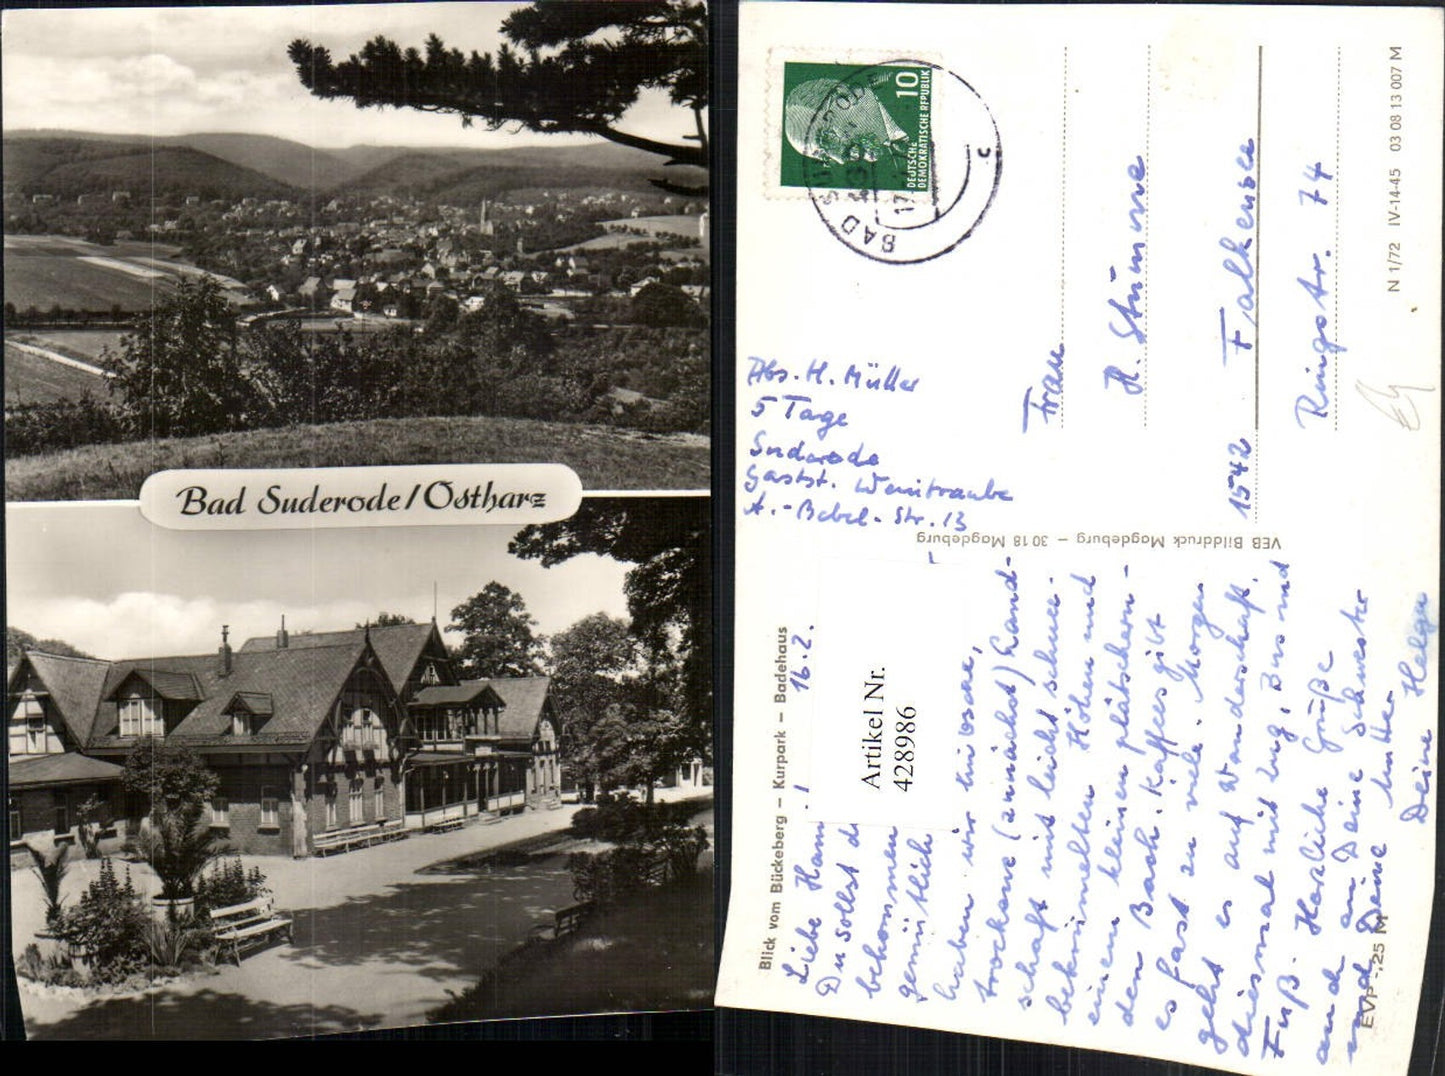 Bad Suderode/Ostharz
10
DEUTSCHE
DEMOKRATISCHE REPUBLIK
BAD SUDERODE
c
Abs. H. Müller
5 Tage
Suderode
Gastst. Weintraube
A.-Bebel-Str. 13
Frau
H. Stumme
1542 Falkensee
Ringstr. 74
N 1/72 IV-14-45 03 08 13 007 M
VEB Bilddruck Magdeburg – 30 18 Magdeburg
Blick vom Bückeberg – Kurpark – Badehaus
EVP -,25 M
Artikel Nr.
428986
16.2.
Liebe Hann
Du sollst d
bekommen
gemütlich
haben wir
trockene (zunächst) Land-
schaft mit leicht schnee-
bekrümelten Höhen und
einem kleinen plätschern-
den Bach. Kaffees gibt
es fast zu viele. Morgen
geht es auf Wanderschaft,
diesmal mit Zug, Bus und
Fuß. Herzliche Grüße
auch an Deine Schwester
und Deine Mutter
Deine Helga